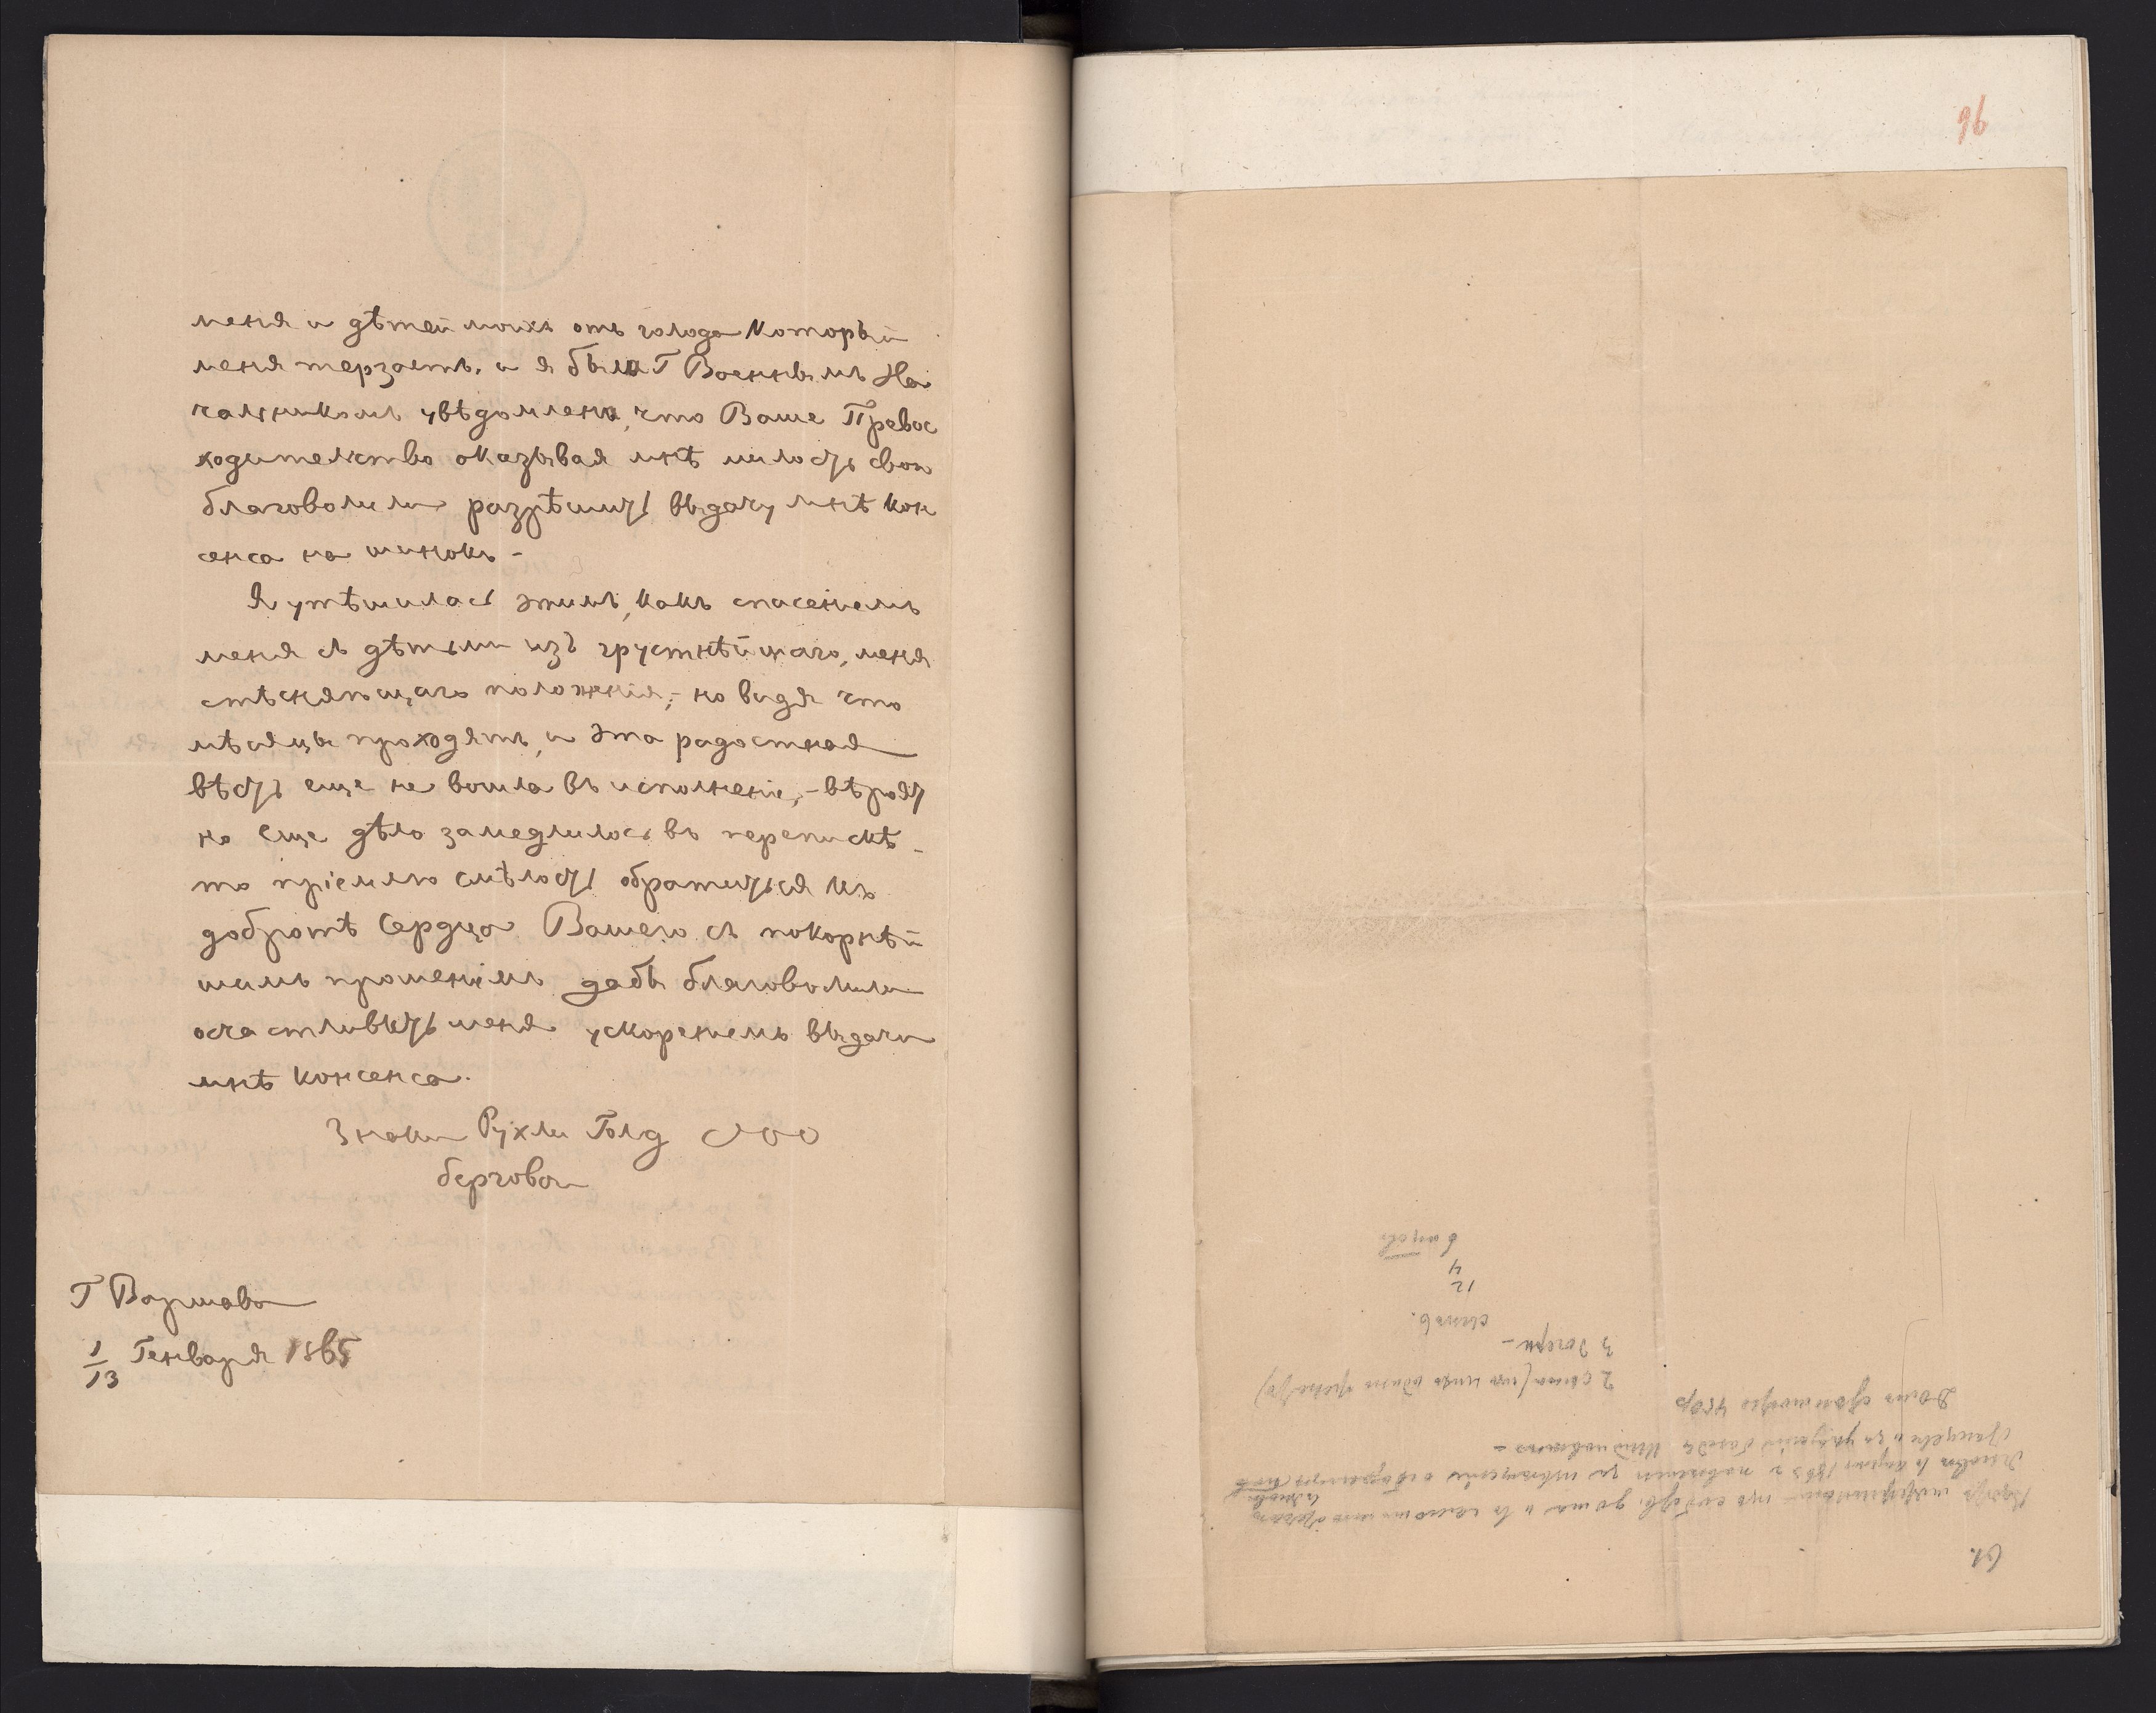 меня и дѣтей моихъ отъ голода который
меня терзаетъ. и я была Г Военнымъ На
чальникомъ увѣдомлена, что Ваше Превос
ходительство оказывая мнѣ милость свою
благоволили разрѣшить выдачу мнѣ кон
сенса на шинокъ -
Я утѣшилась этимъ, какъ спасеніемъ
меня съ дѣтьми изъ грустнѣйшаго, меня
стѣсняющаго положенія, - но видя что
мѣсяцы проходятъ, и эта радостная
вѣсть еще не вошла въ исполненіе, - вѣроят
но еще дѣло замедлилось въ перепискѣ -
то пріемлю смѣлость обратиться къ
добротѣ Сердца Вашего съ покорнѣй
шимъ прошеніемъ дабы благоволили
осчастливить меня ускореніемъ выдачи
мнѣ консенса.
Знаки Рухли Голд ооо
берговой
Г Варшава
1/13 Генваря 1865
96
6 
4
12
3 дочери -
2 сына (изъ нихъ одинъ